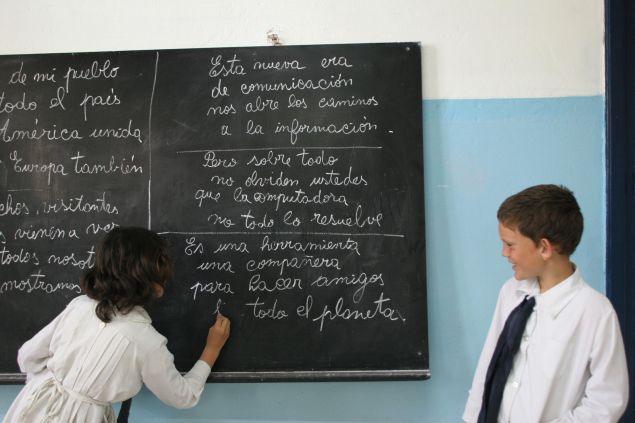 de mi pueblo
todo el país
América unida
Europa también
chos, visitantes
s vienen a ver
todos nosot
mostramos
Esta nueva era
de comunicación
nos abre los caminos
a la información.
Pero sobre todo
no olviden ustedes
que la computadora
no todo lo resuelve
Es una herramienta
una compañera
para hacer amigos
todo el planeta.